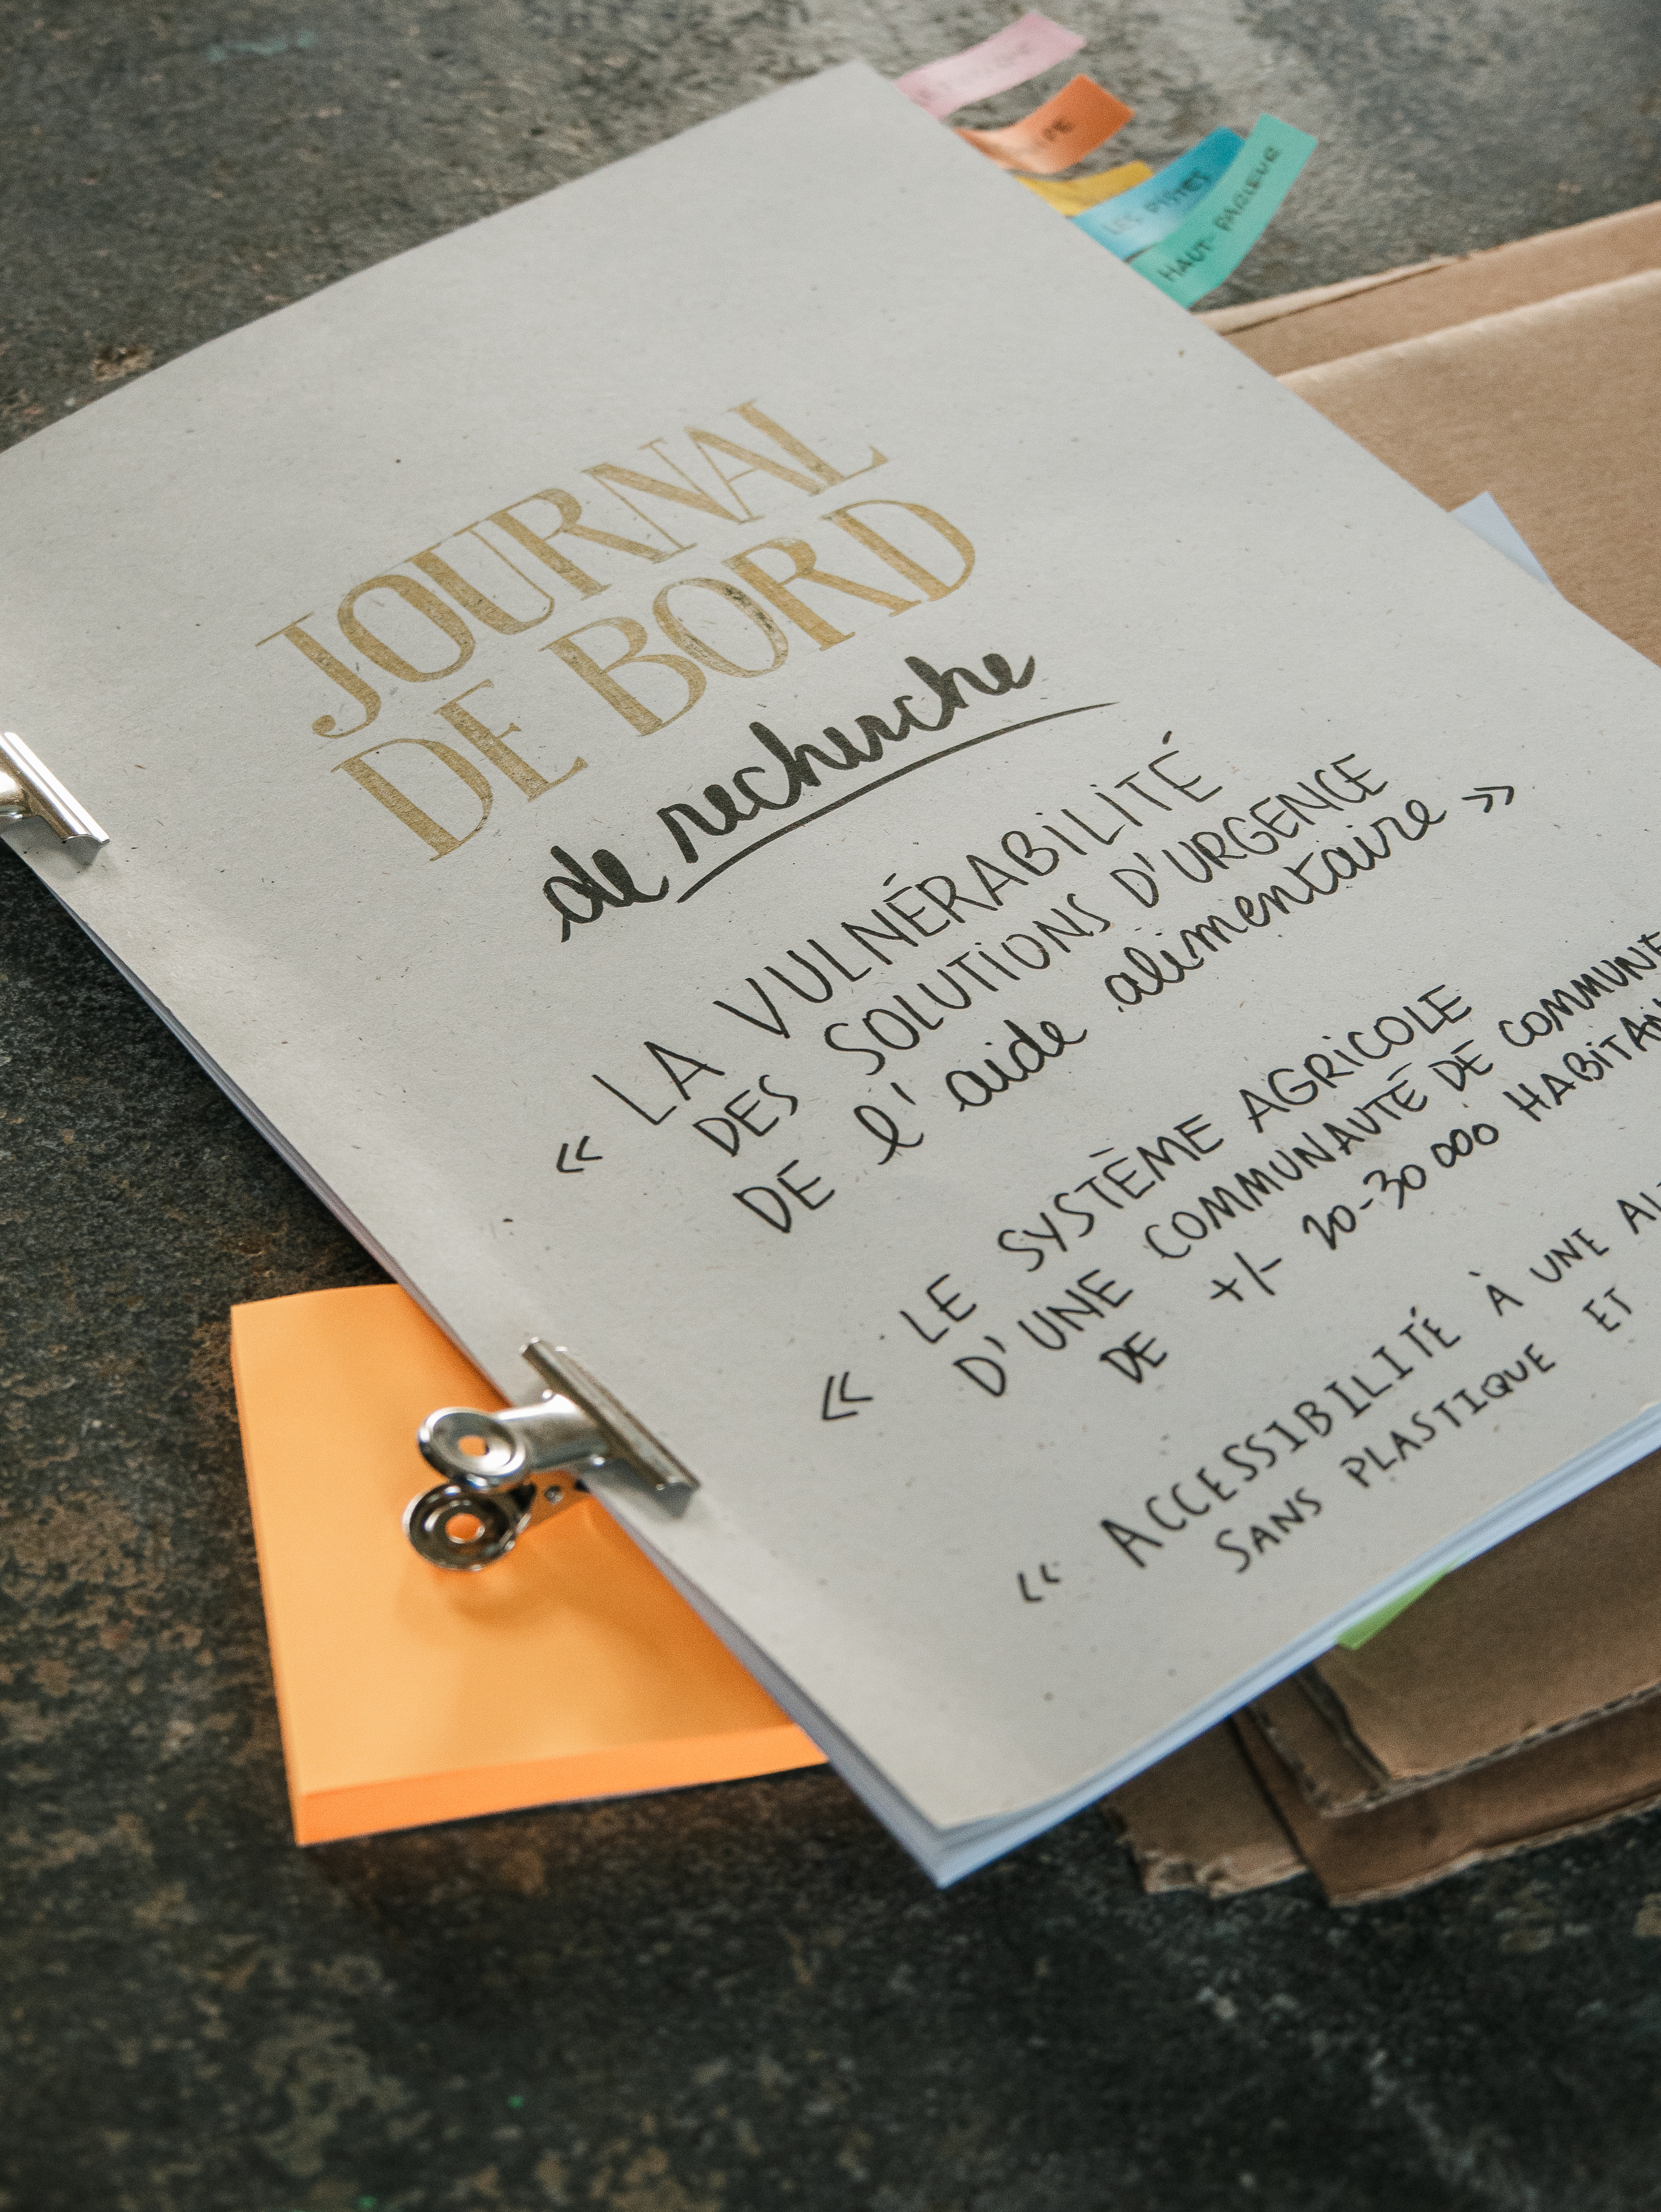 LES PISTES
HAUT-PARLEUR
JOURNAL
DE BORD
de recherche
« LA VULNÉRABILITÉ
DES SOLUTIONS D'URGENCE
DE l'aide alimentaire »
« LE SYSTÈME AGRICOLE
D'UNE COMMUNAUTÉ DE COMMUNE
DE +/- 20-30 000 HABITAN
« ACCESSIBILITÉ À UNE
SANS PLASTIQUE ET